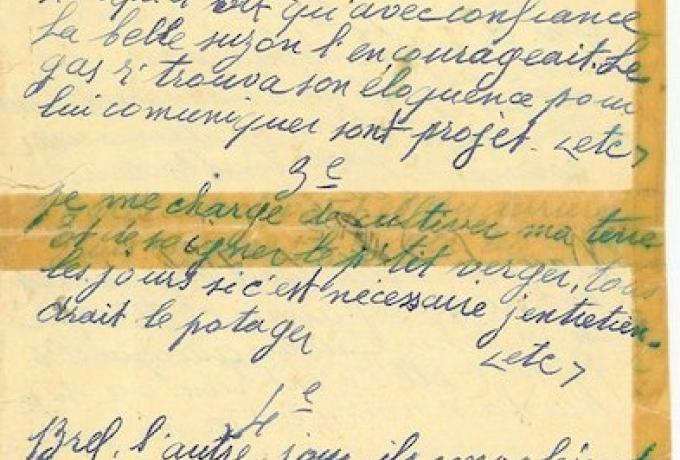 qu'avec confiance
la belle suzon l'encourageait. Le
gas r'trouva son éloquence pour
lui comuniquer sont projet. <etc>
3e
je me charge de cultiver ma terre
et de soigner le p'tit verger, tous
les jours si c'est nécessaire j'entretien-
drait le potager
<etc>
4e
Bref, l'autre jour ils